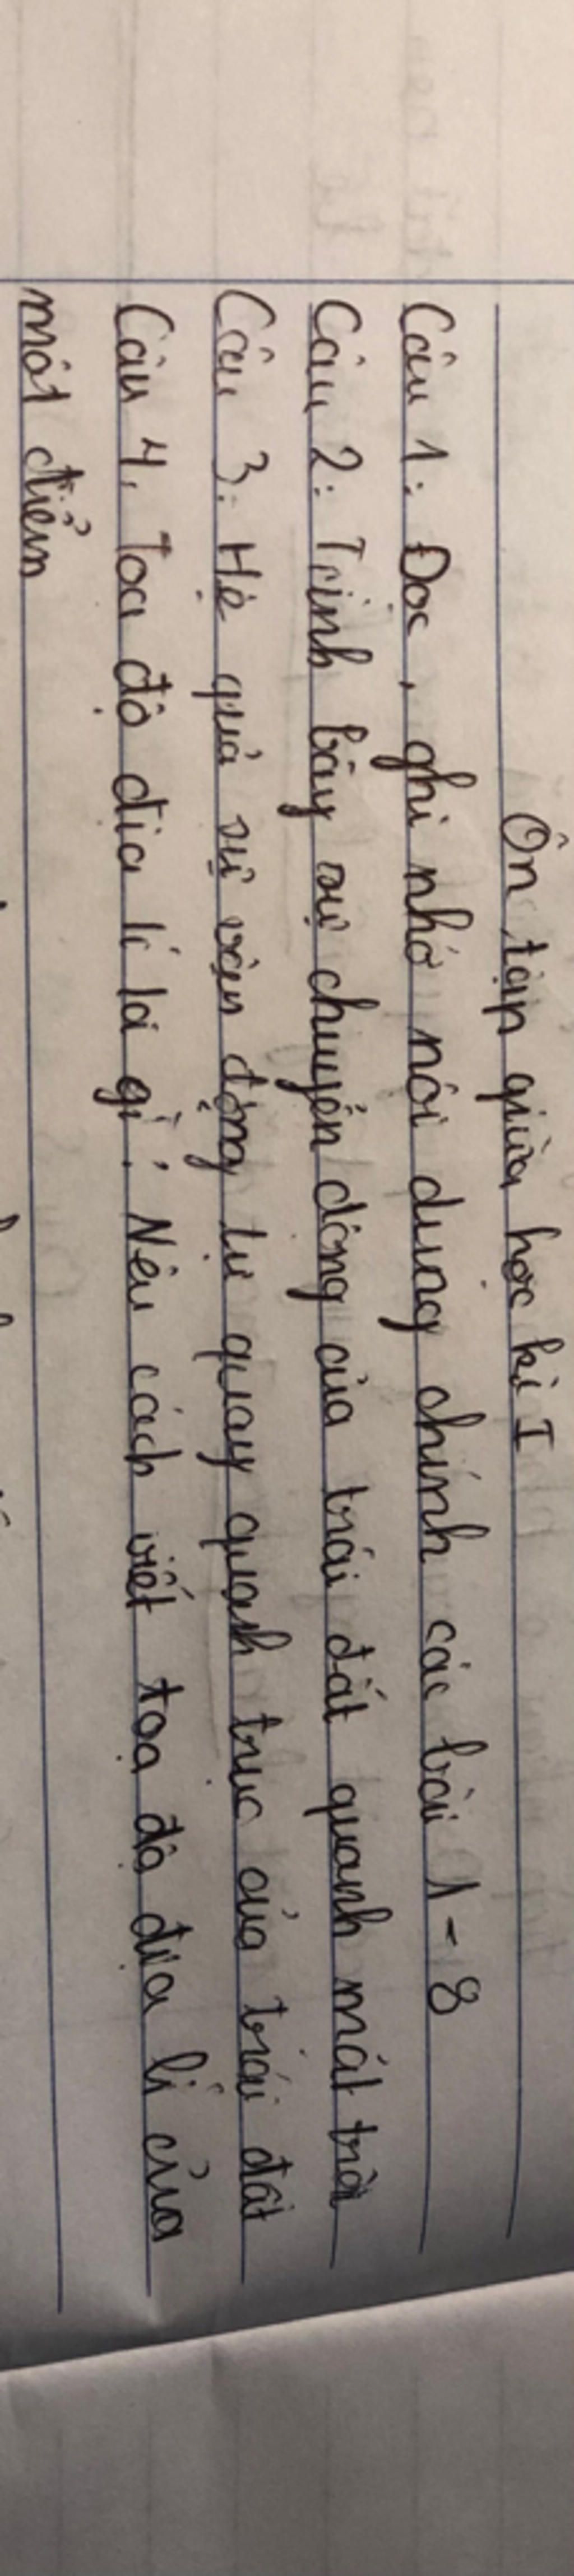 Ôn tập giữa học kì I
Câu 1: Đọc, ghi nhớ nội dung chính các bài 1-8
Câu 2: Trình bày sự chuyển động của trái đất quanh mặt trời
Câu 3: Hệ quả sự vận động tự quay quanh trục của trái đất
Câu 4, Toạ độ địa lí là gì? Nêu cách viết toạ độ địa lí của
một điểm